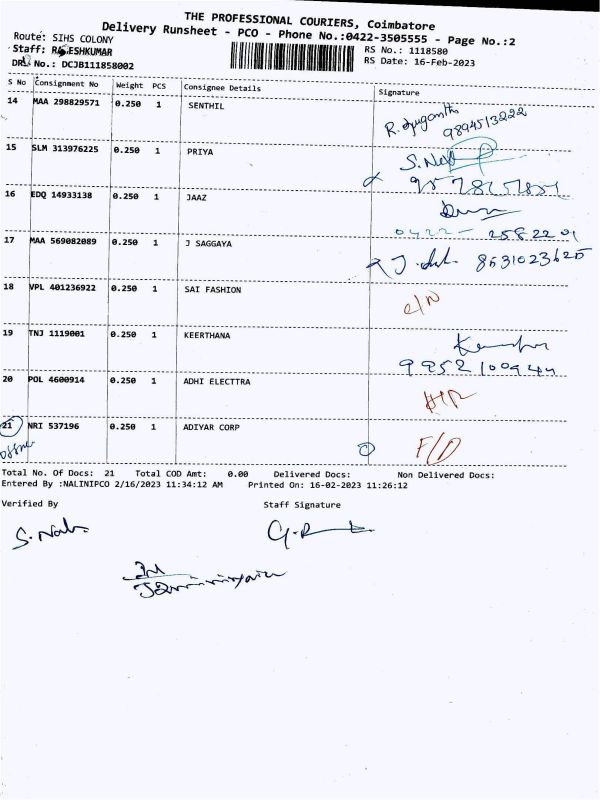 THE PROFESSIONAL COURIERS, Coimbatore
Delivery Runsheet - PCO - Phone No.:0422-3505555 - Page No.:2
Route: SIHS COLONY
Staff: RAJESHKUMAR
RS No.: 1118580
DRS No.: DCJB111858002
RS Date: 16-Feb-2023
S No Consignment No Weight PCS Consignee Details Signature
14 MAA 298829571 0.250 1 SENTHIL
9894513222
15 SLM 313976225 0.250 1 PRIYA S.Nat
16 EDQ 14933138 0.250 1 JAAZ
0422 - 2582201
17 MAA 569082089 0.250 1 J SAGGAYA 8531023625
18 VPL 401236922 0.250 1 SAI FASHION
19 TNJ 1119001 0.250 1 KEERTHANA
20 POL 4600914 0.250 1 ADHI ELECTTRA
21 NRI 537196 0.250 1 ADIYAR CORP F/D
Total No. Of Docs: 21 Total COD Amt: 0.00 Delivered Docs: Non Delivered Docs:
Entered By :NALINIPCO 2/16/2023 11:34:12 AM Printed On: 16-02-2023 11:26:12
Verified By Staff Signature